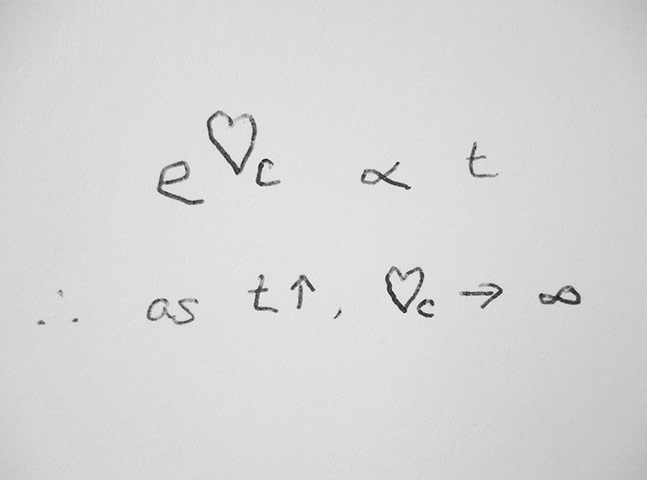 e^♡c ∝ t
∴ as t↑, ♡c → ∞